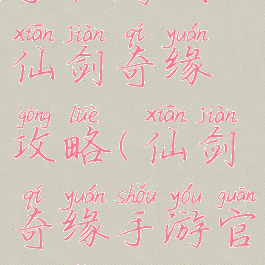 xiān jiàn qí yuán
仙剑奇缘
gōng lüè xiān jiàn
攻略(仙剑
qí yuán shǒu yóu guān
奇缘手游官